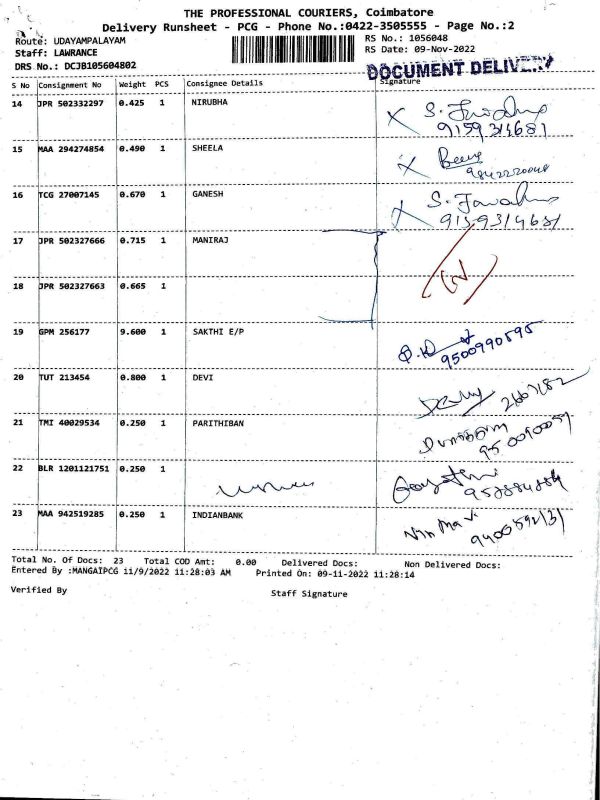 THE PROFESSIONAL COURIERS, Coimbatore
Delivery Runsheet - PCG - Phone No.:0422-3505555 - Page No.:2
Route: UDAYAMPALAYAM
RS No.: 1056048
Staff: LAWRANCE
RS Date: 09-Nov-2022
DRS No.: DCJB105604802
DOCUMENT DELIVERY
S No Consignment No Weight PCS Consignee Details Signature
14 JPR 502332297 0.425 1 NIRUBHA
9159314681
15 MAA 294274854 0.490 1 SHEELA
16 TCG 27007145 0.670 1 GANESH
9159314681
17 JPR 502327666 0.715 1 MANIRAJ
18 JPR 502327663 0.665 1
19 GPM 256177 9.600 1 SAKTHI E/P
9500990595
20 TUT 213454 0.800 1 DEVI
21 TMI 40029534 0.250 1 PARITHIBAN
22 BLR 1201121751 0.250 1
23 MAA 942519285 0.250 1 INDIANBANK
Total No. Of Docs: 23 Total COD Amt: 0.00 Delivered Docs: Non Delivered Docs:
Entered By :MANGAIPCG 11/9/2022 11:28:03 AM Printed On: 09-11-2022 11:28:14
Verified By
Staff Signature